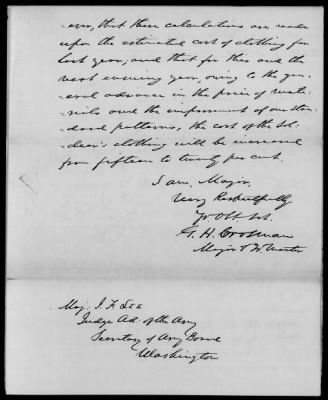 -ever, that these calculations are made
upon the estimated cost of clothing for
last year, and that for this and the
next ensuing year, owing to the gen-
-eral advance in the price of mate-
-rials and the improvement of our stan-
-dard patterns, the cost of the sol-
-dier's clothing will be increased
from fifteen to twenty per cent.
I am, Major,
Very Respectfully
Yr Obt St.
G. H. Crosman
Major &
Maj. J. F. Lee
Judge Ad. of the Army
Secretary of Army Board
Washington